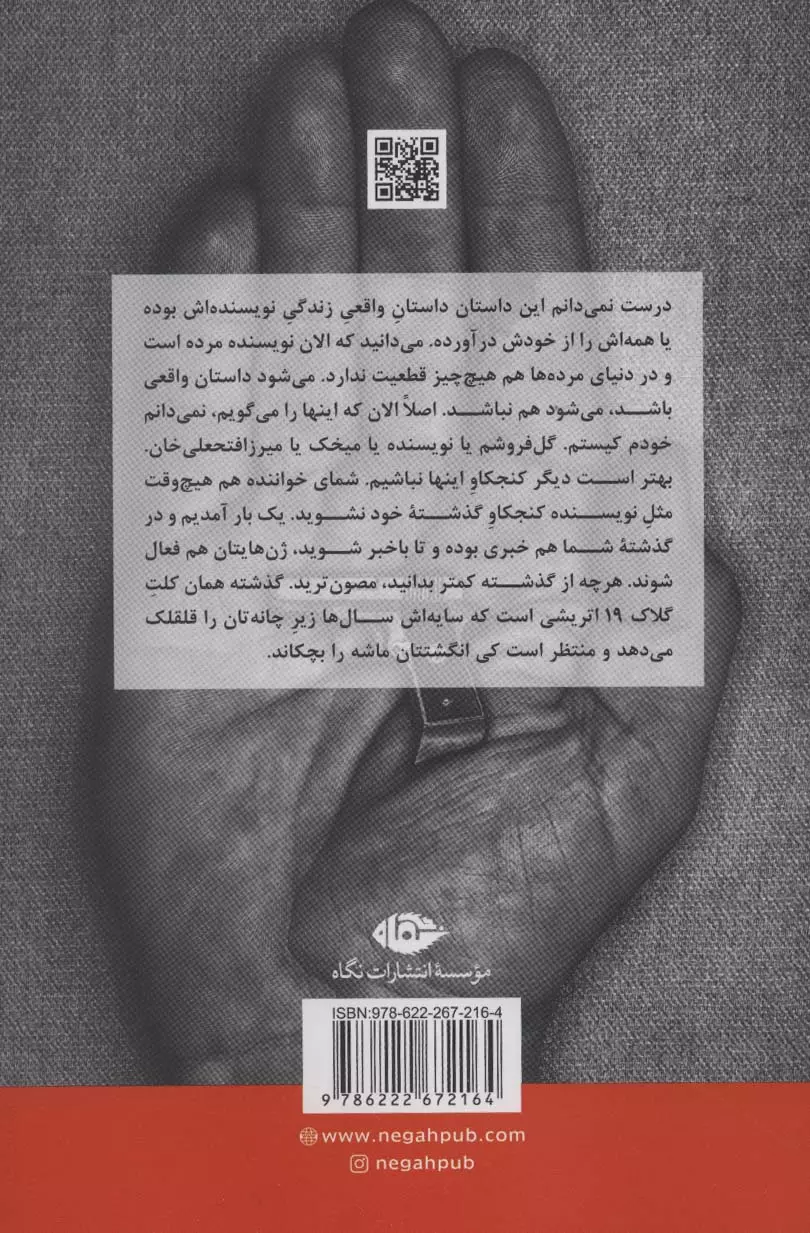 درست نمی‌دانم این داستان داستانِ واقعیِ زندگیِ نویسنده‌اش بوده
یا همه‌اش را از خودش درآورده. می‌دانید که الان نویسنده مرده است
و در دنیای مرده‌ها هم هیچ‌چیز قطعیت ندارد. می‌شود داستان واقعی
باشد، می‌شود هم نباشد. اصلاً الان که اینها را می‌گویم، نمی‌دانم
خودم کیستم. گل‌فروشم یا نویسنده یا میخک یا میرزافتحعلی‌خان.
بهتر است دیگر کنجکاوِ اینها نباشیم. شمای خواننده هم هیچ‌وقت
مثلِ نویسنده کنجکاوِ گذشتهٔ خود نشوید. یک بار آمدیم و در
گذشتهٔ شما هم خبری بوده و تا باخبر شوید، ژن‌هایتان هم فعال
شوند. هرچه از گذشته کمتر بدانید، مصون‌ترید. گذشته همان کلتِ
گلاک ۱۹ اتریشی است که سایه‌اش سال‌ها زیرِ چانه‌تان را قلقلک
می‌دهد و منتظر است کی انگشتتان ماشه را بچکاند.
نگاه
مؤسسهٔ انتشارات نگاه
ISBN:978-622-267-216-4
9 786222 672164
www.negahpub.com
negahpub